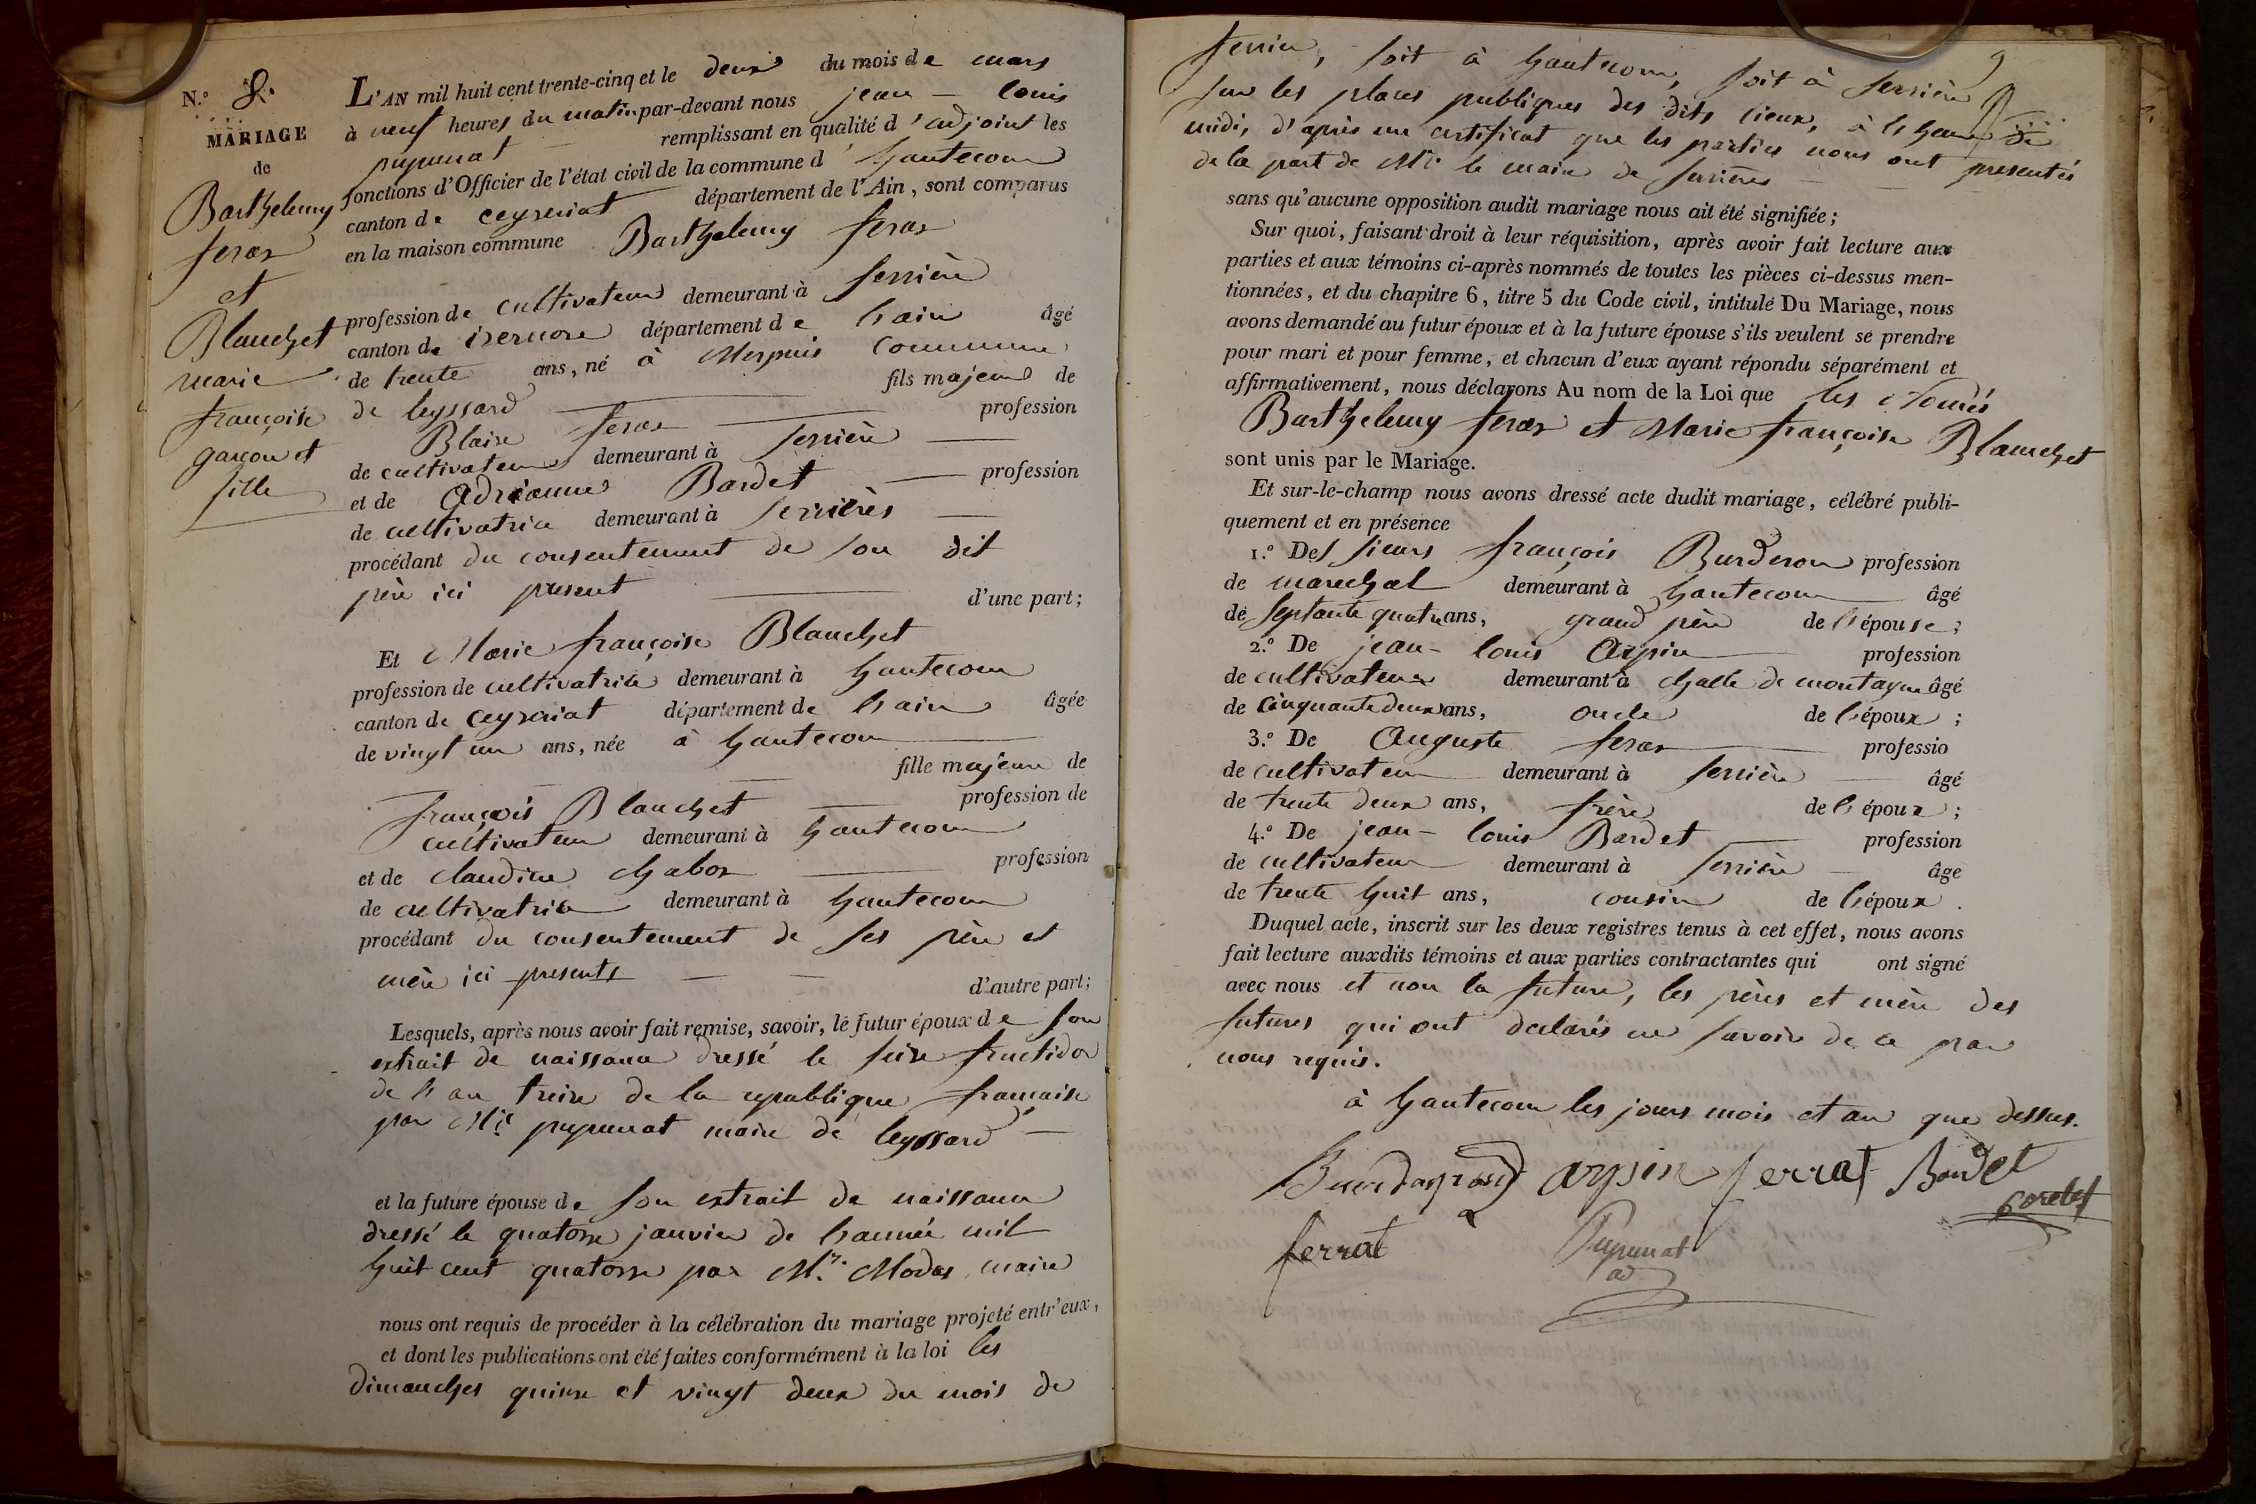 N.o 8.
MARIAGE
de
Barthelemy
feras
et
Blanchet
marie
françoise
garçon et
fille
L'AN mil huit cent trente-cinq et le deux du mois de mars
à neuf heures du matin par-devant nous jean - louis
pupunat remplissant en qualité d'adjoint les
fonctions d'Officier de l'état civil de la commune d'hautecour
canton de ceyzeriat département de l'Ain, sont comparus
en la maison commune Barthelemy feras
profession de cultivateur demeurant à serrière
canton de izernore département de l'ain âgé
de trente ans, né à Mespuis commune
de leyssard fils majeur de
Blaise feras profession
de cultivateur demeurant à serrière
et de Adrianne Bardet profession
de cultivatrice demeurant à serrières
procédant du consentement de son dit
père ici present d'une part;
Et Marie françoise Blanchet
profession de cultivatrice demeurant à hautecour
canton de ceyzeriat département de l'ain âgée
de vingt un ans, née à hautecour
fille majeure de
françois Blanchet profession de
cultivateur demeurant à hautecour
et de claudine chabor profession
de cultivatrice demeurant à hautecour
procédant du consentement de ses père et
mère ici presents d'autre part;
Lesquels, après nous avoir fait remise, savoir, le futur époux de son
extrait de naissance dressé le seize fructidor
de l'an treize de la republique française
par Mr. pupunat maire de leyssard
et la future épouse de son extrait de naissance
dressé le quatorze janvier de l'année mil
huit cent quatorze par Mr. Modas maire
nous ont requis de procéder à la célébration du mariage projeté entr'eux,
et dont les publications ont été faites conformément à la loi les
dimanches quinze et vingt deux du mois de
9
fevrier, soit à hautecour, soit à serrière
sur les places publiques des dits lieux, à l'heure de
midi, d'après un certificat que les parties nous ont presentés
de la part de Mr. le maire de serrières
sans qu'aucune opposition audit mariage nous ait été signifiée;
Sur quoi, faisant droit à leur réquisition, après avoir fait lecture aux
parties et aux témoins ci-après nommés de toutes les pièces ci-dessus men-
tionnées, et du chapitre 6, titre 5 du Code civil, intitulé Du Mariage, nous
avons demandé au futur époux et à la future épouse s'ils veulent se prendre
pour mari et pour femme, et chacun d'eux ayant répondu séparément et
affirmativement, nous déclarons Au nom de la Loi que les només
Barthelemy feras et Marie françoise Blanchet
sont unis par le Mariage.
Et sur-le-champ nous avons dressé acte dudit mariage, célébré publi-
quement et en présence
1.o Des sieurs françois Burderon profession
de marechal demeurant à hautecour âgé
de septante quatre ans, grand père de l'épouse;
2.o De jean - louis Arpin profession
de cultivateur demeurant à challe de montagne âgé
de cinquante deux ans, oncle de l'époux;
3.o De Auguste feras professio
de cultivateur demeurant à serrière âgé
de trente deux ans, frère de l'époux;
4.o De jean - louis Bardet profession
de cultivateur demeurant à serrière âge
de trente huit ans, cousin de l'époux.
Duquel acte, inscrit sur les deux registres tenus à cet effet, nous avons
fait lecture auxdits témoins et aux parties contractantes qui ont signé
avec nous et non la future, les pères et mère des
futures qui ont declarés ne savoir de ce par
nous requis.
à hautecour les jours mois et an que dessus.
arpin ferrat Bardet
ferrat Pupunat
ad